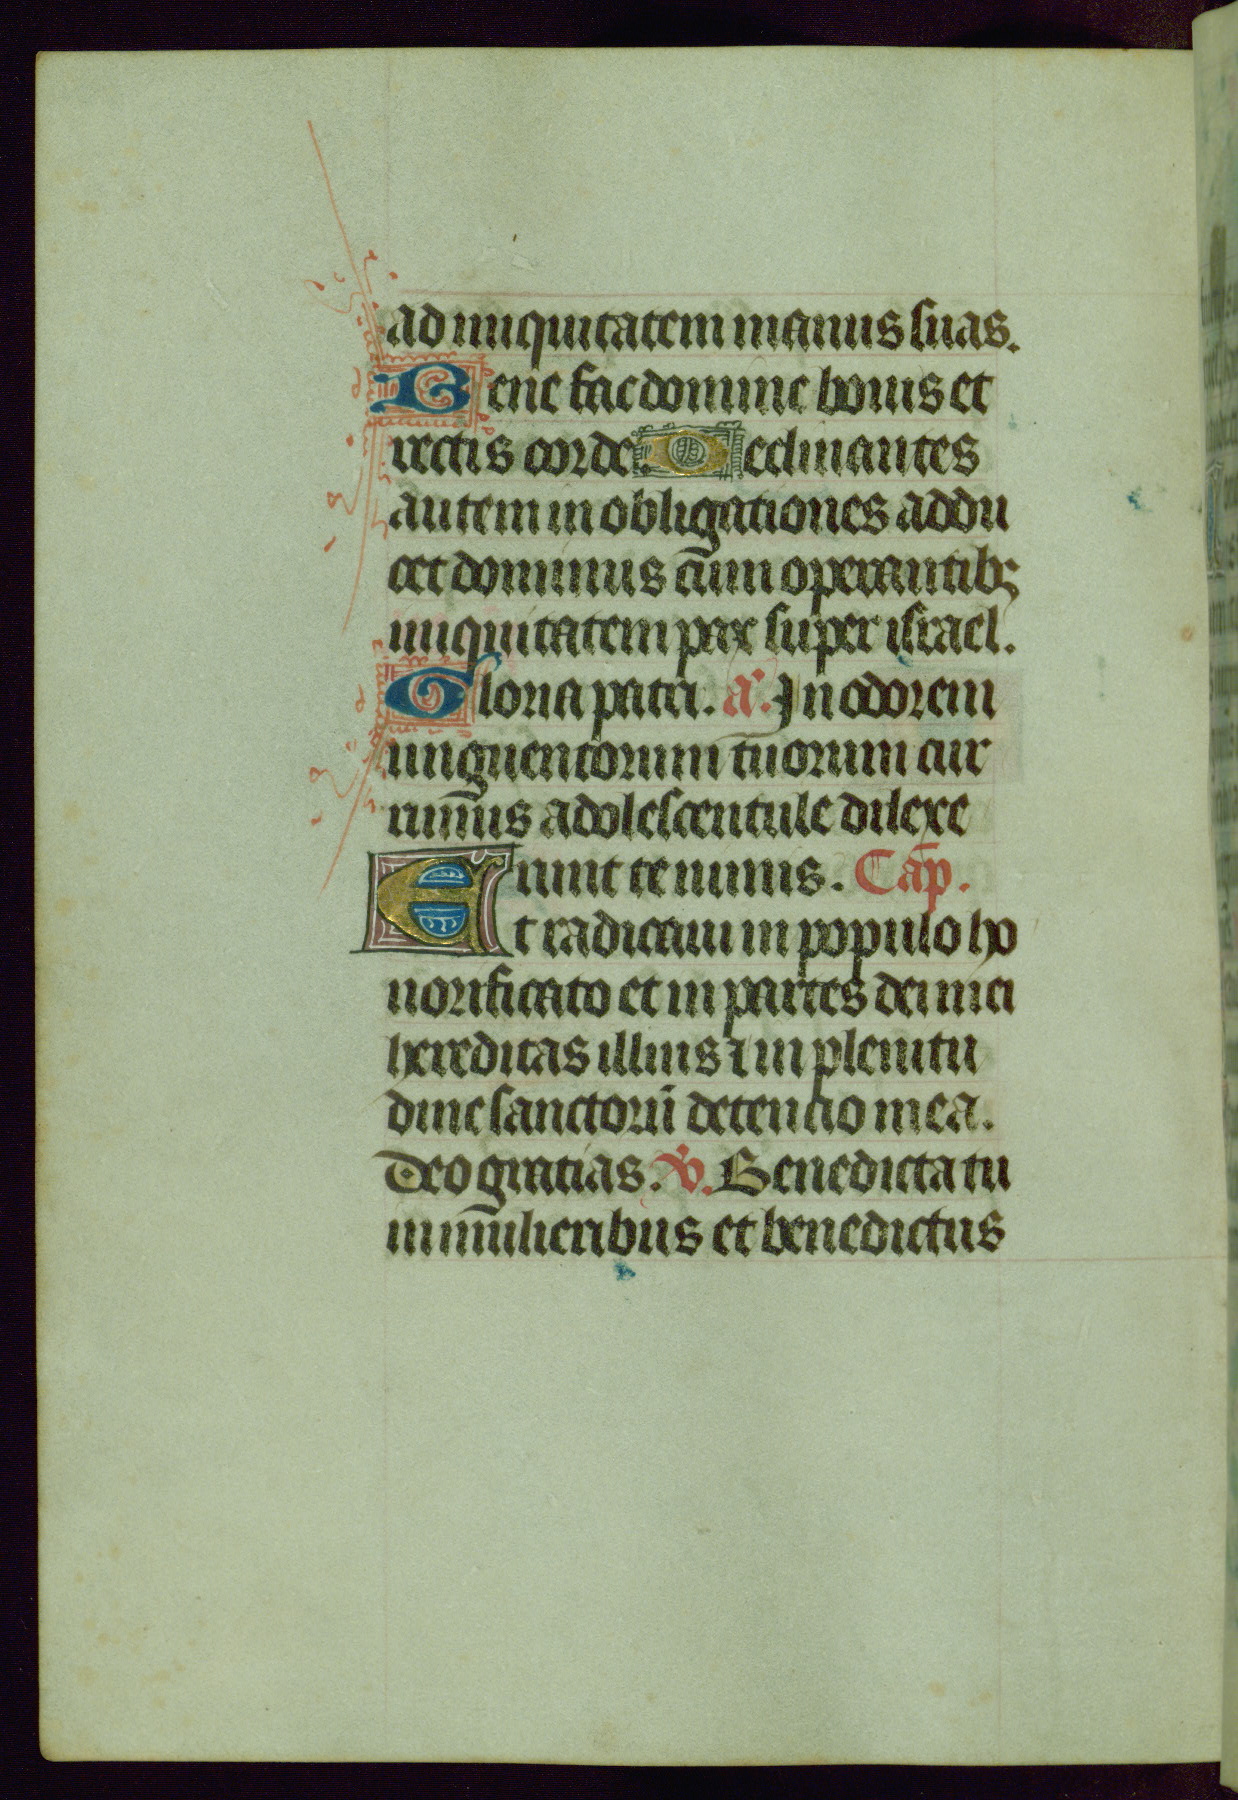 ad iniquitatem manus suas.
Bene fac domine bonis et
rectis corde. Declinantes
autem in obligationes addu
cet dominus cum operantib;
iniquitatem pax super israel.
Gloria patri. a. In odorem
unguentorum tuorum cur
rim̄us adolescentule dilexe
runt te nimis. Cap̄.
Et radicaui in populo ho
norificato et in partes dei mei
hereditas illius ⁊ in plenitu
dine sanctorū detencio mea.
Deo gratias. V. Benedicta tu
in m̄ulieribus et benedictus